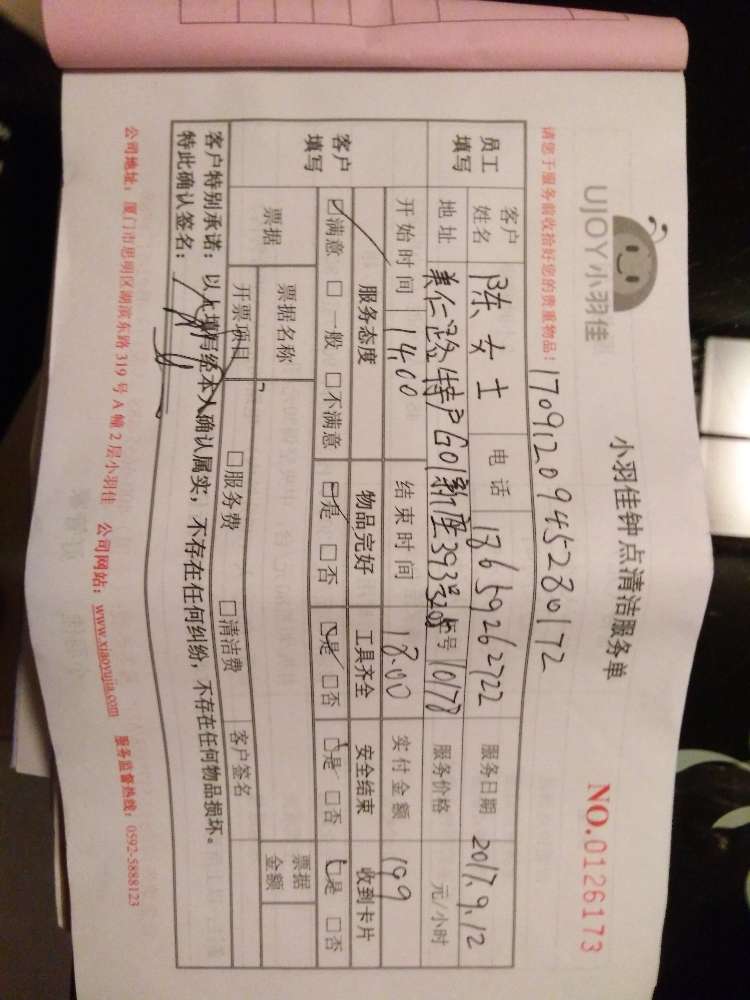 UJOY小羽佳
小羽佳钟点清洁服务单
NO.0126173
请您于服务前收拾好您的贵重物品！
170912094528017 2
员工填写
客户姓名 陈女士 电话 18659262722 服务日期 2017.9.12
地址 美仁路特产601新座393号208 工号 1078 服务价格 元/小时
开始时间 14.00 结束时间 18.00 实付金额 199
客户填写
服务态度 物品完好 工具齐全 安全结束 收到卡片
☑满意 □一般 □不满意 ☑是 □否 ☑是 □否 ☑是 □否 ☑是 □否
票据 票据名称 票据金额
开票项目 □服务费 □清洁费 客户签名
客户特别承诺：以上填写经本人确认属实，不存在任何纠纷，不存在任何物品损坏。
特此确认签名：
公司地址：厦门市思明区湖滨东路 319 号 A 幢 2 层小羽佳 公司网站：www.xiaoyujia.com 服务监督热线：0592-5888123